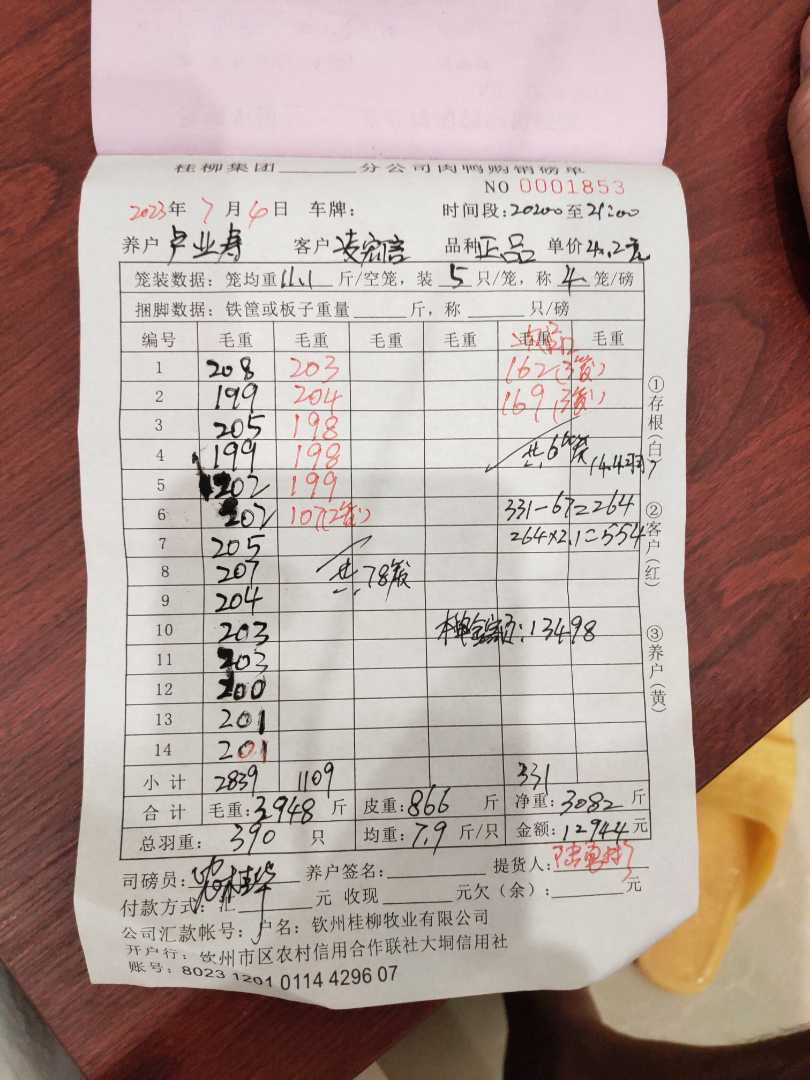 桂柳集团______分公司肉鸭购销磅单
NO 0001853
2023年 7 月 6 日 车牌: 时间段:20200至21:00
养户 卢业寿 客户 凌宏言 品种 正品 单价 4.2元
笼装数据: 笼均重 11.1 斤/空笼, 装 5 只/笼, 称 4 笼/磅
捆脚数据: 铁筐或板子重量______斤, 称______只/磅
编号 毛重 毛重 毛重 毛重 毛重 毛重
1 208 203 162(3笼)
2 199 204 169(3笼)
3 205 198
4 199 198 共6笼
5 202 199
6 202 107(2笼) 331-67=264
7 205 264×2.1=554
8 207 共78笼
9 204
10 203 总金额:13498
11 203
12 200
13 201
14 201
小计 2839 1109 331
合计 毛重:3948 斤 皮重:866 斤 净重:3082 斤
总羽重: 390 只 均重:7.9 斤/只 金额:12944 元
司磅员: 养户签名: 提货人:
付款方式: 汇______元 收现______元欠(余):______元
公司汇款帐号: 户名: 钦州桂柳牧业有限公司
开户行: 钦州市区农村信用合作联社大垌信用社
账号: 8023 1201 0114 4296 07
①存根(白)
②客户(红)
③养户(黄)